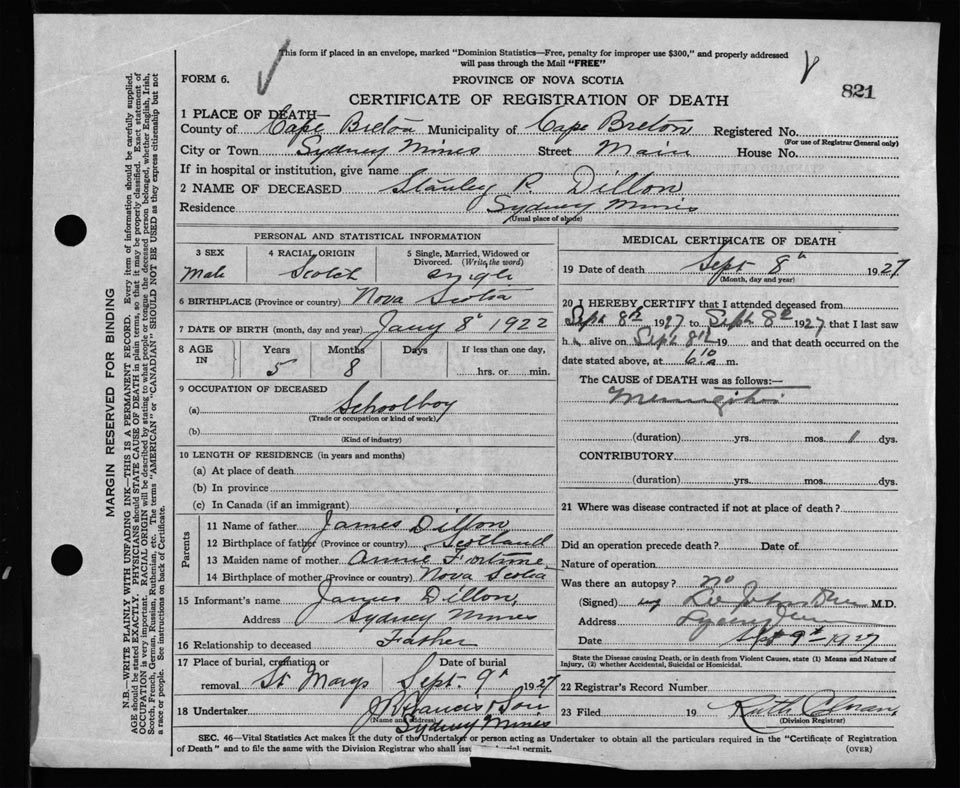 This form if placed in an envelope, marked "Dominion Statistics—Free, penalty for improper use $300," and properly addressed
will pass through the Mail "FREE"
FORM 6.
PROVINCE OF NOVA SCOTIA
821
CERTIFICATE OF REGISTRATION OF DEATH
1 PLACE OF DEATH—
County of Cape Breton Municipality of Cape Breton Registered No.
(For use of Registrar General only)
City or Town Sydney Mines Street Main House No.
If in hospital or institution, give name
2 NAME OF DECEASED Stanley P. Dillon
Residence Sydney Mines
(Usual place of abode)
PERSONAL AND STATISTICAL INFORMATION
3 SEX 4 RACIAL ORIGIN 5 Single, Married, Widowed or Divorced. (Write the word)
Male Scotch Single
6 BIRTHPLACE (Province or country) Nova Scotia
7 DATE OF BIRTH (month, day and year) Jany 8th 1922
8 AGE IN Years Months Days If less than one day,
5 8 hrs. or min.
9 OCCUPATION OF DECEASED
(a) Schoolboy
(Trade or occupation or kind of work)
(b)
(Kind of industry)
10 LENGTH OF RESIDENCE (in years and months)
(a) At place of death
(b) In province
(c) In Canada (if an immigrant)
Parents
11 Name of father James Dillon
12 Birthplace of father (Province or country) Scotland
13 Maiden name of mother Annie Fortune
14 Birthplace of mother (Province or country) Nova Scotia
15 Informant's name James Dillon,
Address Sydney Mines
16 Relationship to deceased Father
17 Place of burial, cremation or Date of burial
removal St Marys Sept. 9th 1927
18 Undertaker J R Francis & Son
(Name and address) Sydney Mines
MEDICAL CERTIFICATE OF DEATH
19 Date of death Sept 8th 1927
(Month, day and year)
20 I HEREBY CERTIFY that I attended deceased from
Sept 8th 1927 to Sept 8th 1927 that I last saw
h alive on Sept 8th 19 and that death occurred on the
date stated above, at 6.10 a m.
The CAUSE OF DEATH was as follows:—
Meningitis
(duration) yrs. mos. 1 dys.
CONTRIBUTORY
(duration) yrs. mos. dys.
21 Where was disease contracted if not at place of death?
Did an operation precede death? Date of
Nature of operation
Was there an autopsy? no
(Signed) M.D.
Address
Date Sept 9th 1927
State the Disease causing Death, or in death from Violent Causes, state (1) Means and Nature of
Injury, (2) whether Accidental, Suicidal or Homicidal.
22 Registrar's Record Number
23 Filed 19 Ruth
(Division Registrar)
SEC. 46—Vital Statistics Act makes it the duty of the Undertaker or person acting as Undertaker to obtain all the particulars required in the "Certificate of Registration
of Death" and to file the same with the Division Registrar who shall issue burial permit. (OVER)
MARGIN RESERVED FOR BINDING
N.B.—WRITE PLAINLY WITH UNFADING INK—THIS IS A PERMANENT RECORD. Every item of information should be carefully supplied.
AGE should be stated EXACTLY. PHYSICIANS should STATE CAUSE OF DEATH in plain terms, so that it may be properly classified. Exact statement of
OCCUPATION is very important. RACIAL ORIGIN will be described by stating to what people or tongue the deceased person belonged, whether English, Irish,
Scotch, French, German, Russian, Ruthenian, etc. The terms "AMERICAN" or "CANADIAN" SHOULD NOT BE USED as they express citizenship but not
a race or people. See instructions on back of Certificate.